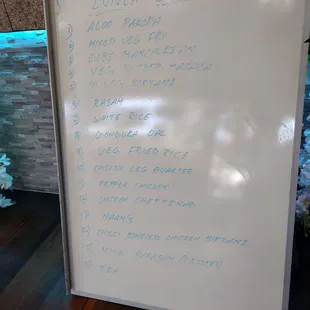 LUNCH
1 ALOO PAKODA
2 MIXED VEG FRY
3 GOBI MANCHURIAN
4 VEG MASALA
5 VEG BIRYANI
6 RASAM
7 WHITE RICE
8 GONGURA DAL
9 VEG FRIED RICE
10 CHICKEN LEG QUARTER
11 PEPPER CHICKEN
12 CHICKEN CHETTINAD
13 NAANS
14 CHILLI BONELESS CHICKEN
15 (DESSERT)
TEA